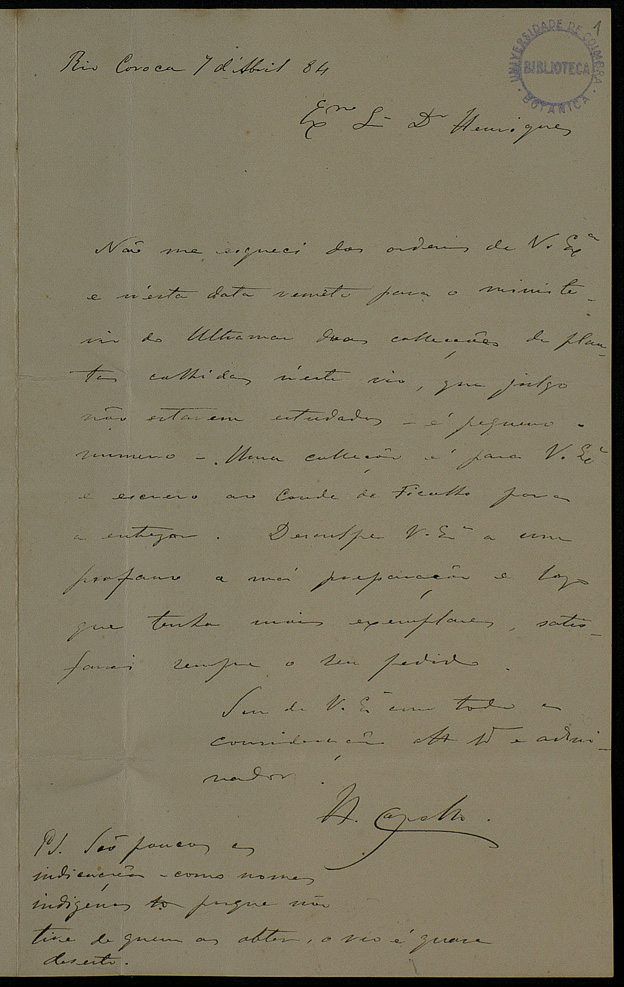 1
UNIVERSIDADE DE COIMBRA
BIBLIOTECA
BOTANICA
Rio Coroca 7 d'Abril 84
Exmo Sr Dr Henriques
Não me esqueci das ordens de V. Exa
e n'esta data remeto para o ministe-
rio do Ultramar duas collecções de plan-
tas colhidas n'este rio, que julgo
não estarem estudadas - é pequeno o
numero -. Uma collecção é para V. Exa
e escrevo ao Conde de Ficalho para
a entregar. Desculpe V. Exa a um
profano a má preparação e logo
que tenha mais exemplares, satis-
farei sempre o seu pedido.
Sou de V. Exa com toda a
consideração att Vr e admi-
rador.
H. Capello.
P.S. São poucas as
indicações - como nomes
indigenas porque não
tive de quem as obter, o rio é quase
deserto.